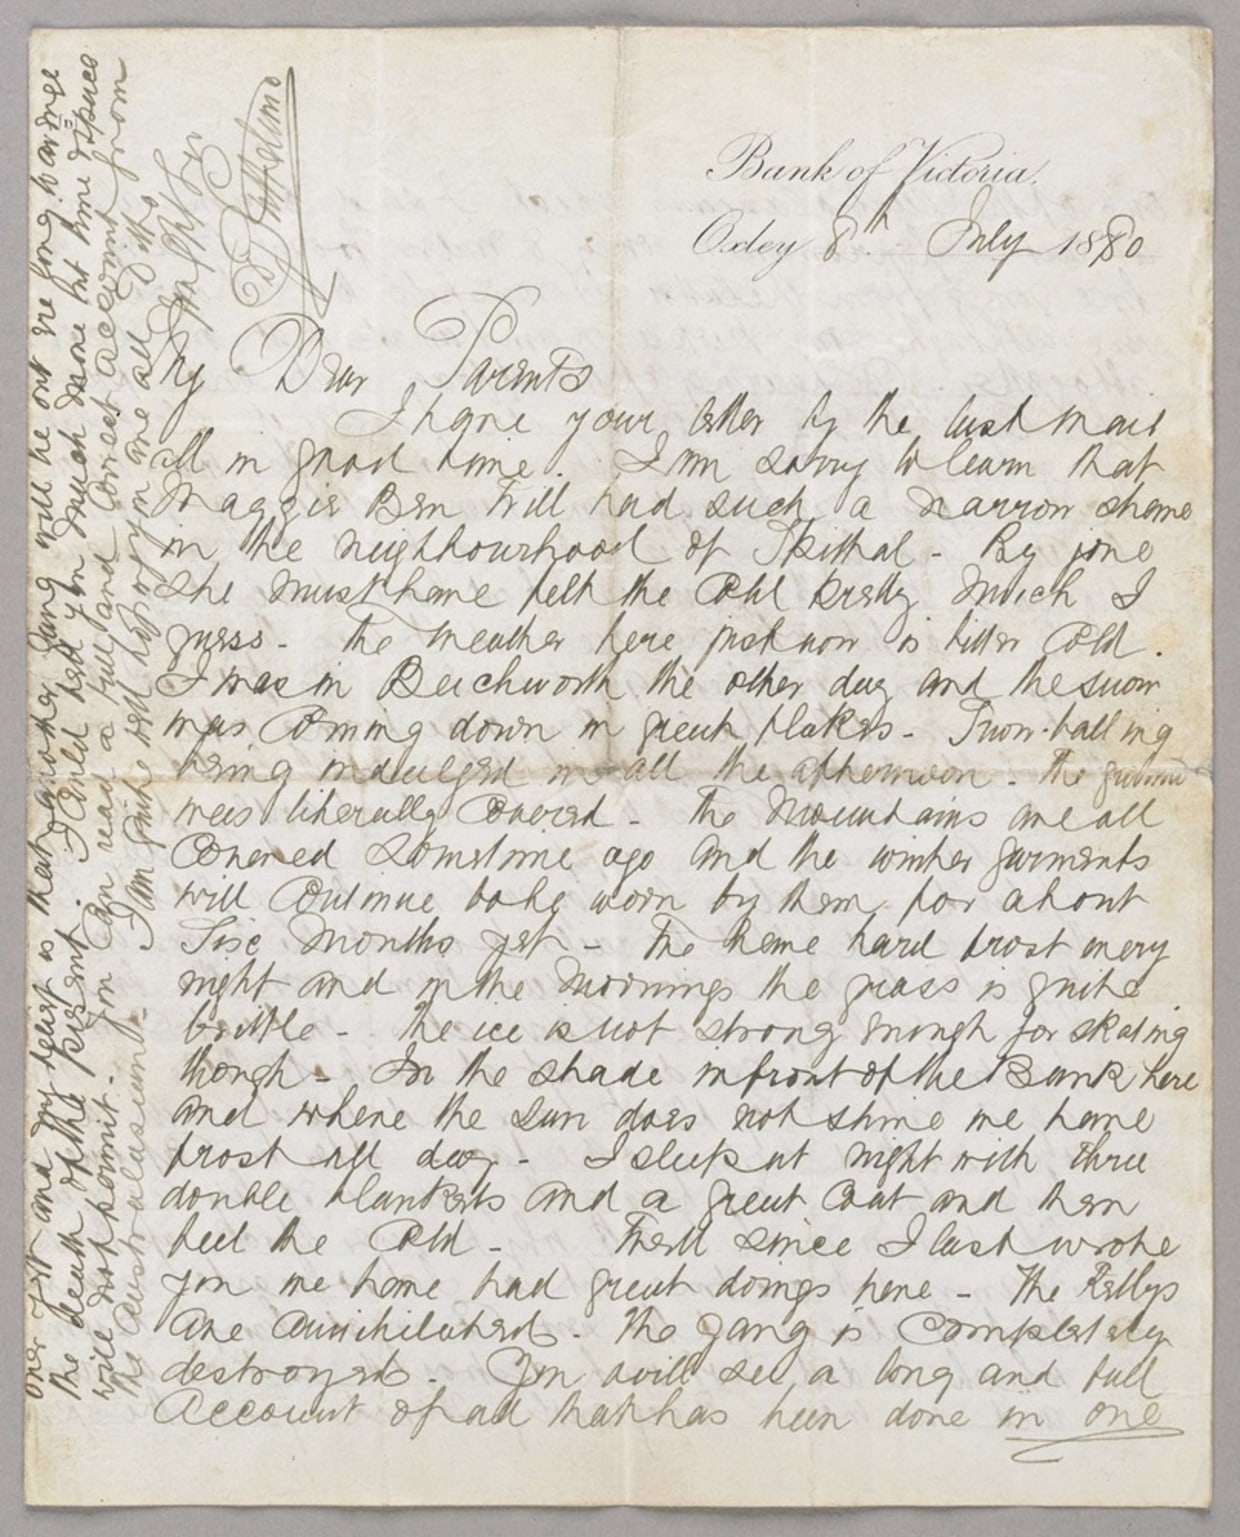 Bank of Victoria.
Oxley 8th July 1880
My Dear Parents
I have your letter by the last mail
all in good time. I am sorry to learn that
Maggie Bem Will had such a narrow shave
in the neighbourhood of Spittal - By jove
she must have felt the Cold pretty much I
guess - The weather here just now is bitter Cold.
I was in Beechworth the other day and the snow
was Coming down in great flakes - Snow-balling
being indulged in all the afternoon - The ground
was literally Covered - The Mountains are all
Covered Sometime ago and the winter garments
will Continue to be worn by them for about
Six Months yet - We have hard frost every
night and in the Mornings the grass is quite
brittle - The ice is not strong enough for skating
though - In the shade in front of the Bank here
and where the Sun does not shine we have
frost all day - I sleep at night with three
double blankets and a great Coat and then
feel the Cold - Well since I last wrote
you we have had great doings here - The Kellys
are annihilated - The gang is Completely
destroyed - You will see a long and full
Account of all that has been done in one
over yet and my belief is that another Gang will be out ere long to avenge
the death of the present. I Could tell you much more but time & space
will not permit. You Can read a full and Correct account from
the Australasian - I am quite well hope you are all Ditto